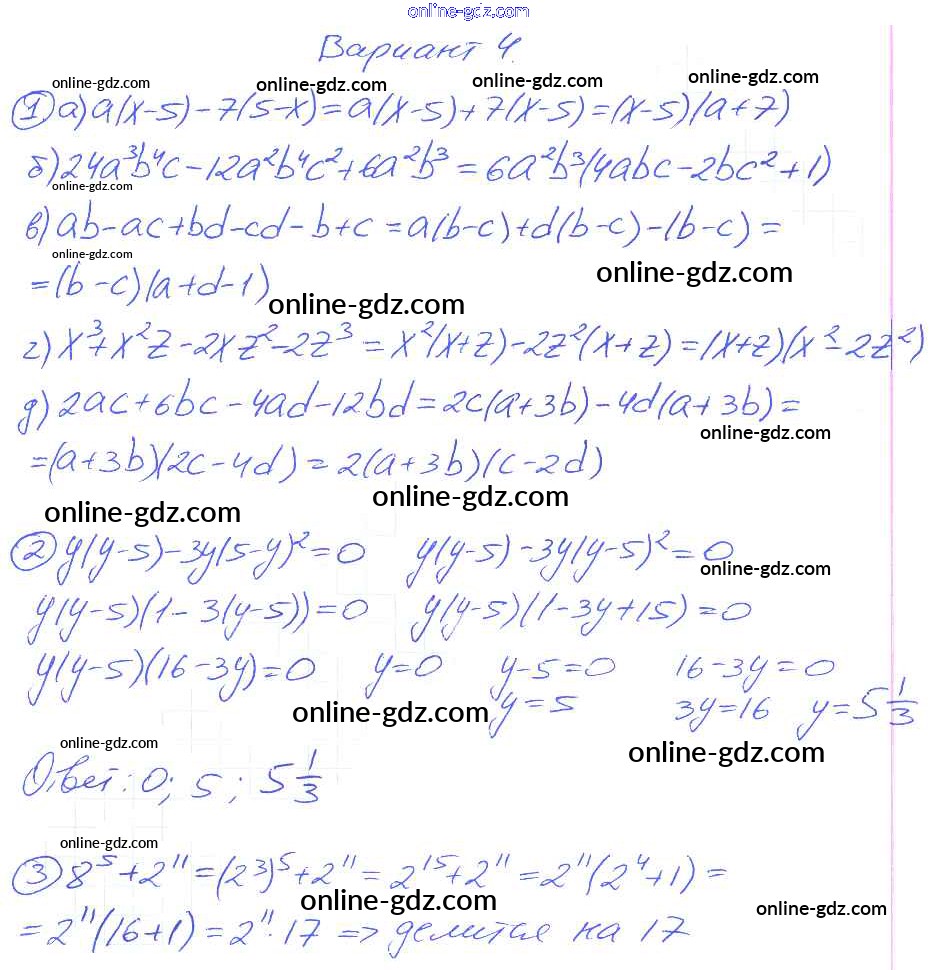 online-gdz.com
Вариант 4.
online-gdz.com online-gdz.com online-gdz.com
① а) a(x-5)-7(5-x)=a(x-5)+7(x-5)=(x-5)(a+7)
б) 24a³b⁴c-12a²b⁴c²+6a²b³=6a²b³(4abc-2bc²+1)
online-gdz.com
в) ab-ac+bd-cd-b+c=a(b-c)+d(b-c)-(b-c)=
online-gdz.com
=(b-c)(a+d-1) online-gdz.com
online-gdz.com
г) x³+x²z-2xz²-2z³=x²(x+z)-2z²(x+z)=(x+z)(x²-2z²)
д) 2ac+6bc-4ad-12bd=2c(a+3b)-4d(a+3b)=
online-gdz.com
=(a+3b)(2c-4d)=2(a+3b)(c-2d)
online-gdz.com online-gdz.com
② y(y-5)-3y(5-y)²=0 y(y-5)-3y(y-5)²=0
online-gdz.com
y(y-5)(1-3(y-5))=0 y(y-5)(1-3y+15)=0
y(y-5)(16-3y)=0 y=0 y-5=0 16-3y=0
online-gdz.com y=5 3y=16 y=5 1/3
online-gdz.com online-gdz.com
Ответ: 0; 5; 5 1/3
online-gdz.com
③ 8⁵+2¹¹=(2³)⁵+2¹¹=2¹⁵+2¹¹=2¹¹(2⁴+1)=
online-gdz.com online-gdz.com
=2¹¹(16+1)=2¹¹·17 => делится на 17